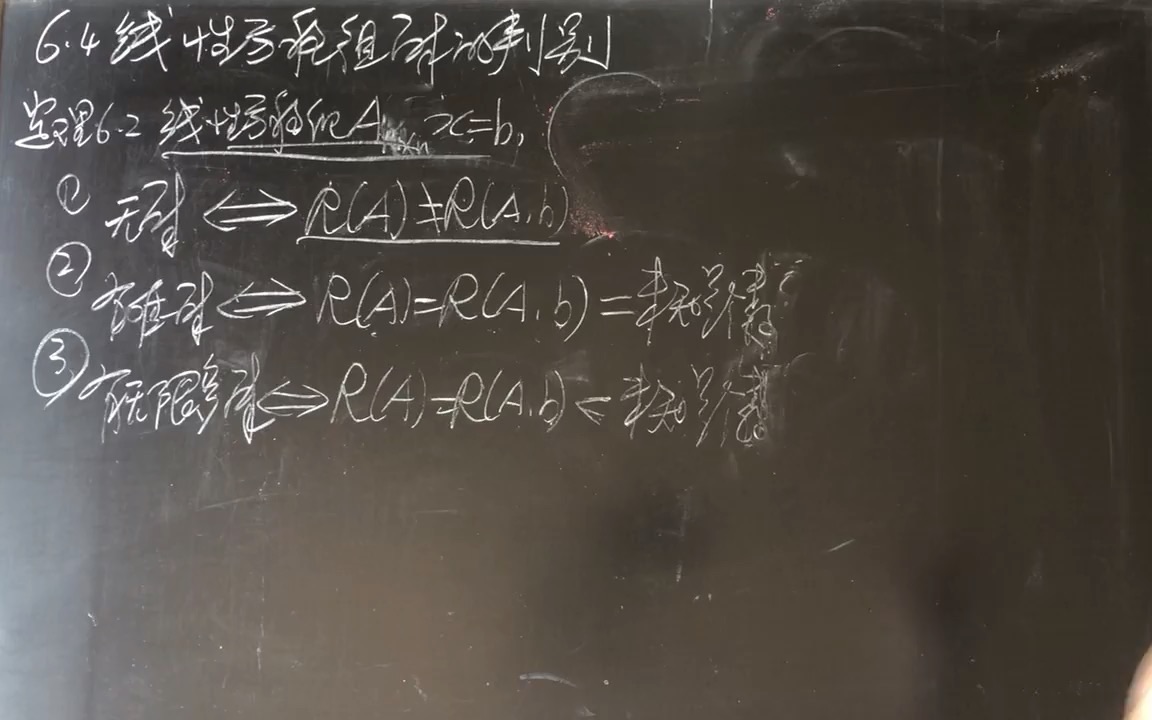 6.4 线性方程组解的判别
定理6.2 线性方程组Aₘₓₙx=b,
① 无解 ⟺ R(A)≠R(A,b)
② 有唯一解 ⟺ R(A)=R(A,b)=未知数个数
③ 有无限多解 ⟺ R(A)=R(A,b)<未知数个数